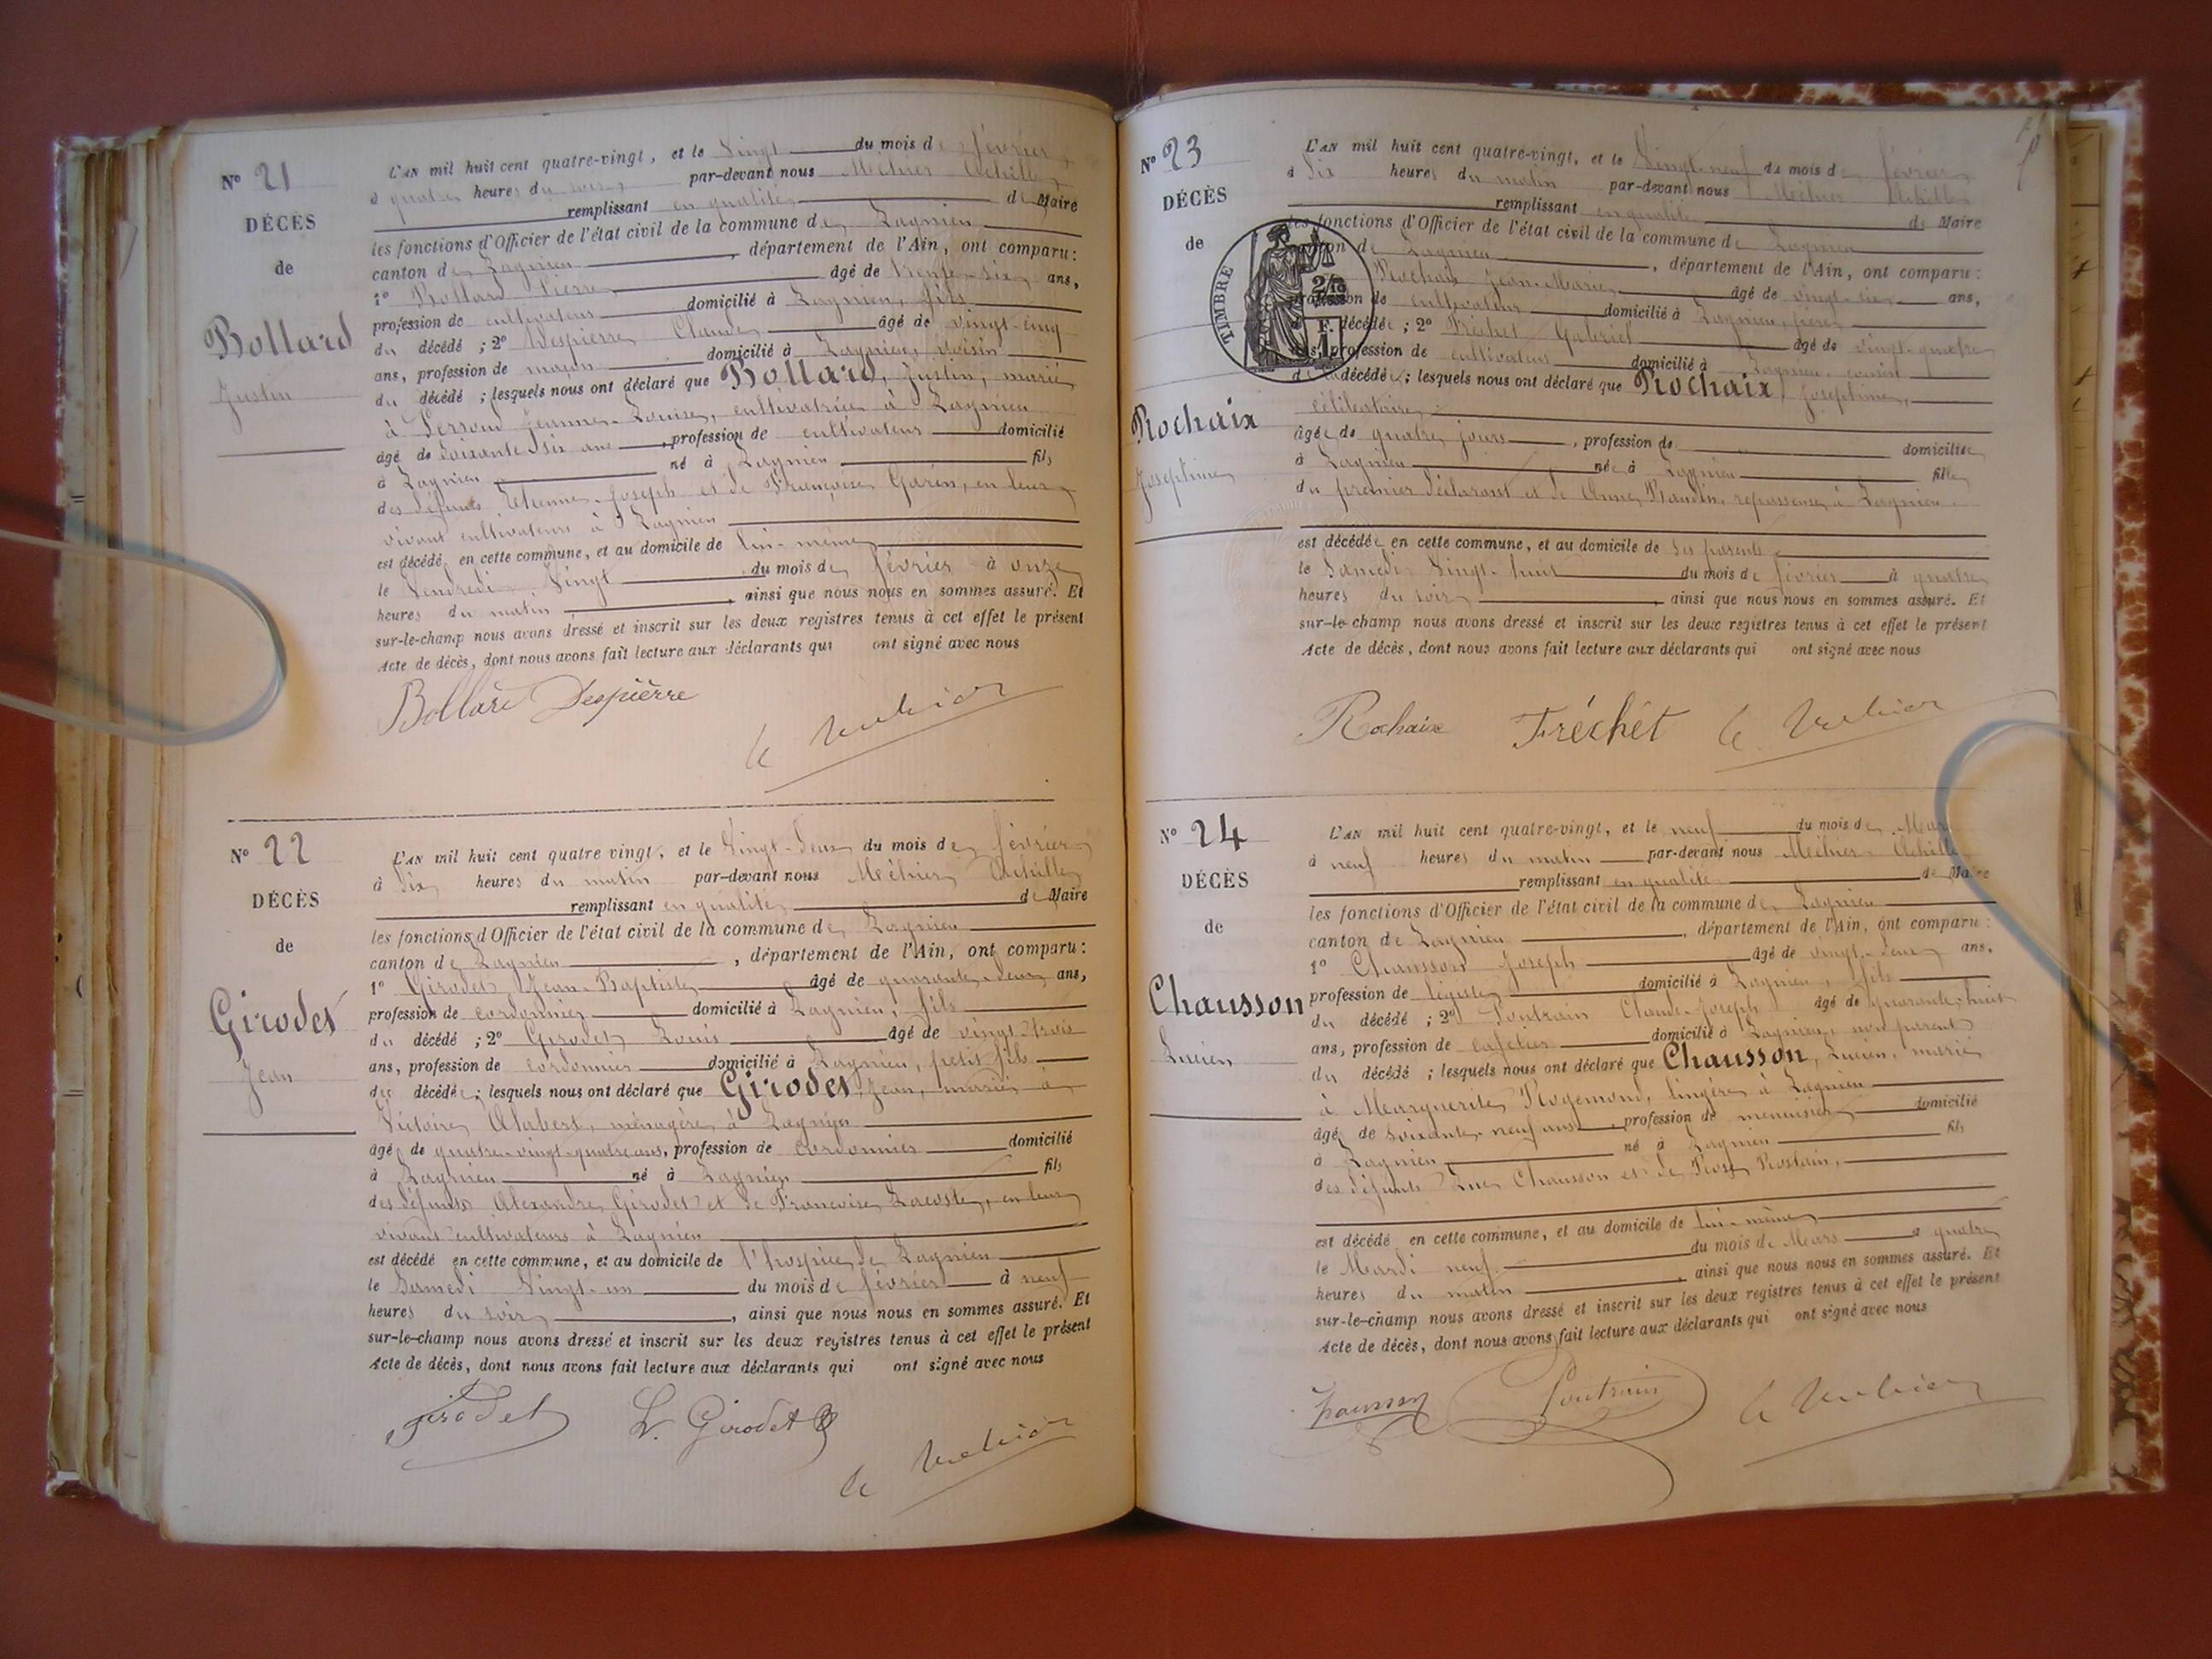 N° 21
DÉCÈS
de
Bollard
Justin
L'AN mil huit cent quatre-vingt, et le Vingt du mois de février
à quatre heures du soir par-devant nous Méhier Achille
remplissant en qualité de Maire
les fonctions d'Officier de l'état civil de la commune de Lagnieu
canton de Lagnieu, département de l'Ain, ont comparu :
1° Bollard Pierre âgé de trente-six ans,
profession de cultivateur domicilié à Lagnieu, fils
du décédé ; 2° Despierre Claude âgé de vingt-cinq
ans, profession de maçon domicilié à Lagnieu, voisin
du décédé ; lesquels nous ont déclaré que Bollard, Justin, marié
à Perroud Jeanne-Louise, cultivatrice à Lagnieu
âgé de soixante six ans, profession de cultivateur domicilié
à Lagnieu né à Lagnieu fils
des défunts Etienne-Joseph et de Françoise Garin, en leur
vivant cultivateurs à Lagnieu
est décédé en cette commune, et au domicile de lui-même
le Vendredi Vingt du mois de février à onze
heures du matin, ainsi que nous nous en sommes assuré. Et
sur-le-champ nous avons dressé et inscrit sur les deux registres tenus à cet effet le présent
Acte de décès, dont nous avons fait lecture aux déclarants qui ont signé avec nous
Bollard Despièrre
A Méhier
N° 22
DÉCÈS
de
Girodet
Jean
L'AN mil huit cent quatre vingt, et le Vingt-deux du mois de février
à six heures du matin par-devant nous Méhier Achille
remplissant en qualité de Maire
les fonctions d'Officier de l'état civil de la commune de Lagnieu
canton de Lagnieu, département de l'Ain, ont comparu :
1° Girodet Jean-Baptiste âgé de quarante-deux ans,
profession de cordonnier domicilié à Lagnieu, fils
du décédé ; 2° Girodet Louis âgé de vingt-trois
ans, profession de cordonnier domicilié à Lagnieu, petit fils
du décédé ; lesquels nous ont déclaré que Girodet, Jean, marié à
Victoire Alabert, ménagère à Lagnieu
âgé de quatre-vingt-quatre ans, profession de cordonnier domicilié
à Lagnieu né à Lagnieu fils
des défunts Alexandre Girodet et de Françoise Lacoste, en leur
vivant cultivateurs à Lagnieu
est décédé en cette commune, et au domicile de l'hospice de Lagnieu
le Samedi Vingt-un du mois de février à neuf
heures du soir, ainsi que nous nous en sommes assuré. Et
sur-le-champ nous avons dressé et inscrit sur les deux registres tenus à cet effet le présent
Acte de décès, dont nous avons fait lecture aux déclarants qui ont signé avec nous
Girodet L. Girodet
A Méhier
N° 23
DÉCÈS
de
TIMBRE
Rochaix
Joséphine
L'AN mil huit cent quatre-vingt, et le Vingt-neuf du mois de février
à six heures du matin par-devant nous Méhier Achille
remplissant en qualité de Maire
les fonctions d'Officier de l'état civil de la commune de Lagnieu
canton de Lagnieu, département de l'Ain, ont comparu :
Rochaix Jean-Marie âgé de vingt-six ans,
profession de cultivateur domicilié à Lagnieu, père
décédée ; 2° Fréchet Gabriel âgé de vingt-quatre
ans, profession de cultivateur domicilié à Lagnieu, cousin
de la décédée ; lesquels nous ont déclaré que Rochaix Joséphine,
célibataire,
âgée de quatre jours, profession de domiciliée
à Lagnieu née à Lagnieu fille
du premier déclarant et de Anne Baudin, repasseuse à Lagnieu.
est décédée en cette commune, et au domicile de ses parents
le Samedi Vingt-huit du mois de février à quatre
heures du soir, ainsi que nous nous en sommes assuré. Et
sur-le-champ nous avons dressé et inscrit sur les deux registres tenus à cet effet le présent
Acte de décès, dont nous avons fait lecture aux déclarants qui ont signé avec nous
Rochaix Fréchét A Méhier
N° 24
DÉCÈS
de
Chausson
Lucien
L'AN mil huit cent quatre-vingt, et le neuf du mois de Mars
à neuf heures du matin par-devant nous Méhier Achille
remplissant en qualité de Maire
les fonctions d'Officier de l'état civil de la commune de Lagnieu
canton de Lagnieu, département de l'Ain, ont comparu :
1° Chausson Joseph âgé de vingt-deux ans,
profession de légiste domicilié à Lagnieu, fils
du décédé ; 2° Poutrain Claude-Joseph âgé de quarante-huit
ans, profession de cafetier domicilié à Lagnieu, non parent
du décédé ; lesquels nous ont déclaré que Chausson, Lucien, marié
à Marguerite Rogemond, lingère à Lagnieu
âgé de soixante-neuf ans, profession de menuisier domicilié
à Lagnieu né à Lagnieu fils
des défunts Luc Chausson et de Rose Rostain,
est décédé en cette commune, et au domicile de lui-même
le Mardi neuf du mois de Mars à quatre
heures du matin, ainsi que nous nous en sommes assuré. Et
sur-le-champ nous avons dressé et inscrit sur les deux registres tenus à cet effet le présent
Acte de décès, dont nous avons fait lecture aux déclarants qui ont signé avec nous
Chausson Poutrain A Méhier